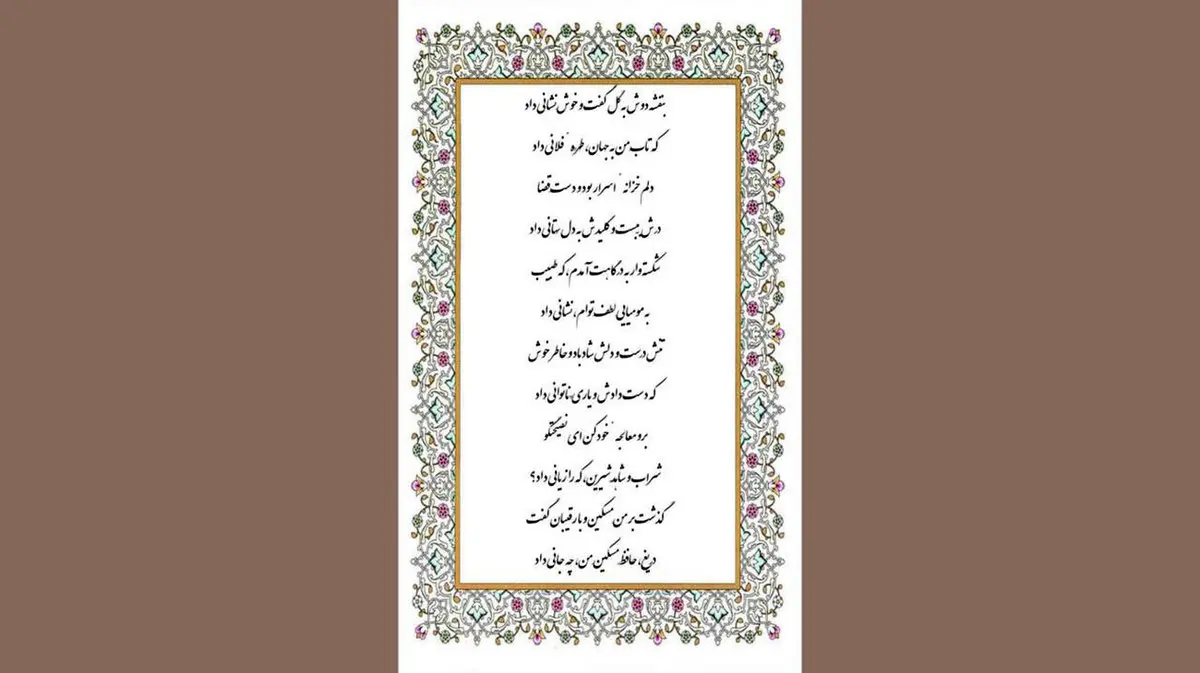 بنفشه دوش به گل گفت و خوش نشانی داد
که تاب من به جهان، طره ٔ فلانی داد
دلم خزانه ٔ اسرار بود و دست قضا
درش ببست و کلیدش به دل ستانی داد
شکسته وار به درگاهت آمدم، که طبیب
به مومیایی لطف توام، نشانی داد
تنش درست و دلش شاد باد و خاطر خوش
که دست دادش و یاری ناتوانی داد
برو معالجه ٔ خود کن ای نصیحتگو
شراب و شاهد شیرین، که را زیانی داد؟
گذشت بر من مسکین و با رقیبان گفت
دریغ، حافظ مسکین من، چه جانی داد